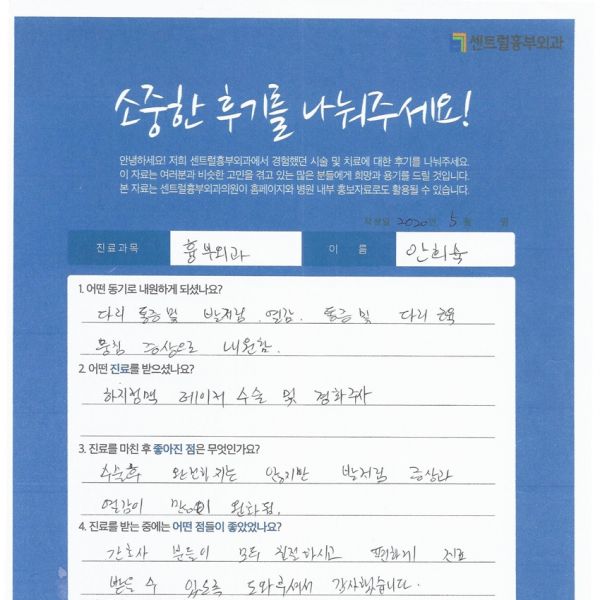 센트럴흉부외과
소중한 후기를 나눠주세요!
안녕하세요! 저희 센트럴흉부외과에서 경험했던 시술 및 치료에 대한 후기를 나눠주세요.
이 자료는 여러분과 비슷한 고민을 겪고 있는 많은 분들에게 희망과 용기를 드릴 것입니다.
본 자료는 센트럴흉부외과의원이 홈페이지와 병원 내부 홍보자료로도 활용될 수 있습니다.
작성일 2020년 5월 일
진료과목 흉부외과 이 름 안희숙
1. 어떤 동기로 내원하게 되셨나요?
다리 통증 및 발저림. 열감. 통증 및 다리 근육
뭉침 증상으로 내원함.
2. 어떤 진료를 받으셨나요?
하지정맥 레이저 수술 및 경화주사
3. 진료를 마친 후 좋아진 점은 무엇인가요?
수술후 완전히는 않지만 발저림 증상과
열감이 많이 완화됨.
4. 진료를 받는 중에는 어떤 점들이 좋았었나요?
간호사 분들이 모두 친절하시고 편하게 진료
받을 수 있도록 도와주셔서 감사했습니다.